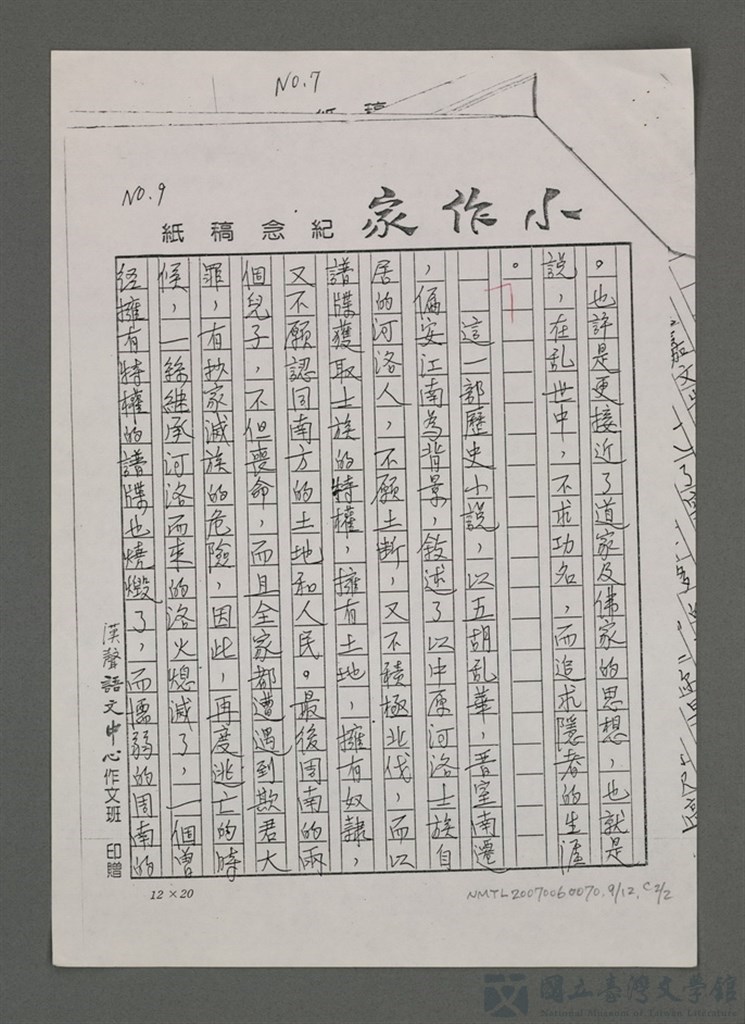 NO.7
稿紙
NO.9
小作家
紀念稿紙
。也許是更接近了道家及佛家的思想，也就是
說，在乱世中，不求功名，而追求隱者的生涯
。
這一部歷史小說，以五胡乱華，晋室南遷
，偏安江南為背景，敍述了以中原河洛士族自
居的河洛人，不願土断，又不積極北伐，而以
譜牒獲取士族的特權，擁有土地，擁有奴隸，
又不願認同南方的土地和人民。最後周南的兩
個兒子，不但喪命，而且全家都遭遇到欺君大
罪，有抄家滅族的危險，因此，再度逃亡的時
候，一絲継承河洛而来的洛火熄滅了，一個曾
経擁有特權的譜牒也燒燬了，而懦弱的周南的
漢聲語文中心作文班 印贈
12×20
NMTL20070060070.9/12.C2/2
國立臺灣文學館
National Museum of Taiwan Literature